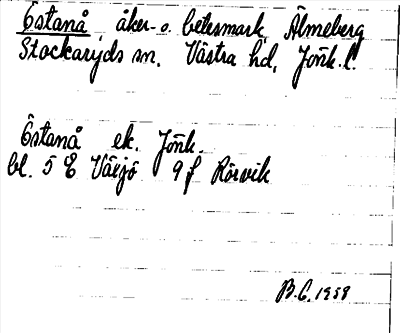 Östanå åker- o. betesmark, Älmeberg
Stockaryds sn. Västra hd, Jönk. l.
Östanå ek. Jönk.
bl. 5 E Växjö 9 f Rörvik
B.C. 1959